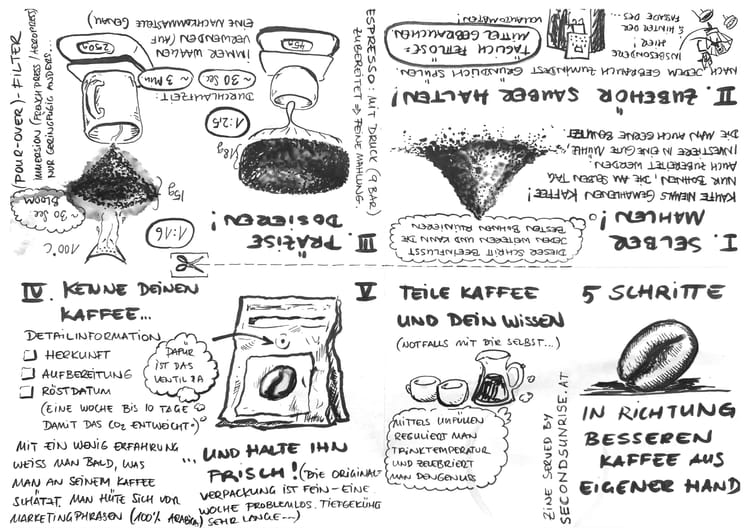 5 SCHRITTE
IN RICHTUNG
BESSEREN
KAFFEE AUS
EIGENER HAND
ZINE SERVED BY
SECONDSUNRISE.AT
I SELBER
MAHLEN!
DIESER SCHRITT BEEINFLUSST
JEDEN WEITEREN UND KANN DIE
BESTEN BOHNEN RUINIEREN
KAUFE NIEMALS GEMAHLENEN KAFFEE!
NUR BOHNEN, DIE AM SELBEN TAG
AUCH ZUBEREITET WERDEN.
INVESTIERE IN EINE GUTE MÜHLE,
DIE MAN AUCH GERNE BENUTZT
II ZUBEHÖR SAUBER HALTEN!
NACH JEDEM GEBRAUCH ZUMINDEST GRÜNDLICH SPÜLEN.
INSBESONDERE
HIER!
& HINTER DER
FASSADE DES
VOLLAUTOMATEN!
TÄGLICH FETTLÖSE-
MITTEL GEBRAUCHEN
III PRÄZISE
DOSIEREN!
ESPRESSO: MIT DRUCK (9 BAR)
ZUBEREITET => FEINE MAHLUNG.
18g
1:2,5
45g
DURCHLAUFZEIT:
~30 SEC
~3 MIN
IMMER WAAGEN
VERWENDEN (AUF
EINE NACHKOMMASTELLE
GENAU)
1:16
100°C
~30 SEC
BLOOM
15g
250g
(POUR-OVER)-FILTER
IMMERSION (FRENCH PRESS / AEROPRESS)
NUR GERINGFÜGIG ANDERS...
IV. KENNE DEINEN
KAFFEE...
DETAILINFORMATION
HERKUNFT
AUFBEREITUNG
RÖSTDATUM
(EINE WOCHE BIS 10 TAGE
DAMIT DAS CO2 ENTWEICHT.)
DAFÜR
IST DAS
VENTIL DA
MIT EIN WENIG ERFAHRUNG
WEISS MAN BALD, WAS
MAN AN SEINEM KAFFEE
SCHÄTZT. MAN HÜTE SICH VOR
MARKETINGPHRASEN (100% ARABICA)
... UND HALTE IHN
FRISCH! (DIE ORIGINAL-
VERPACKUNG IST FEIN - EINE
WOCHE PROBLEMLOS. TIEFGEKÜHLT
SEHR LANGE...)
V TEILE KAFFEE
UND DEIN WISSEN
(NOTFALLS MIT DIR SELBST...)
MITTELS UMFÜLLEN
REGULIERT MAN
TRINKTEMPERATUR
UND ZELEBRIERT
MAN DEN GENUSS